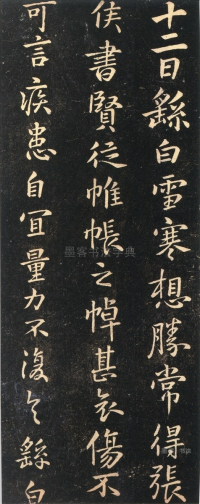 十二日繇白雪寒想勝常得張
侯書賢從帷帳之悼甚哀傷不
可言疾患自宜量力不復具繇白
墨客书法字典